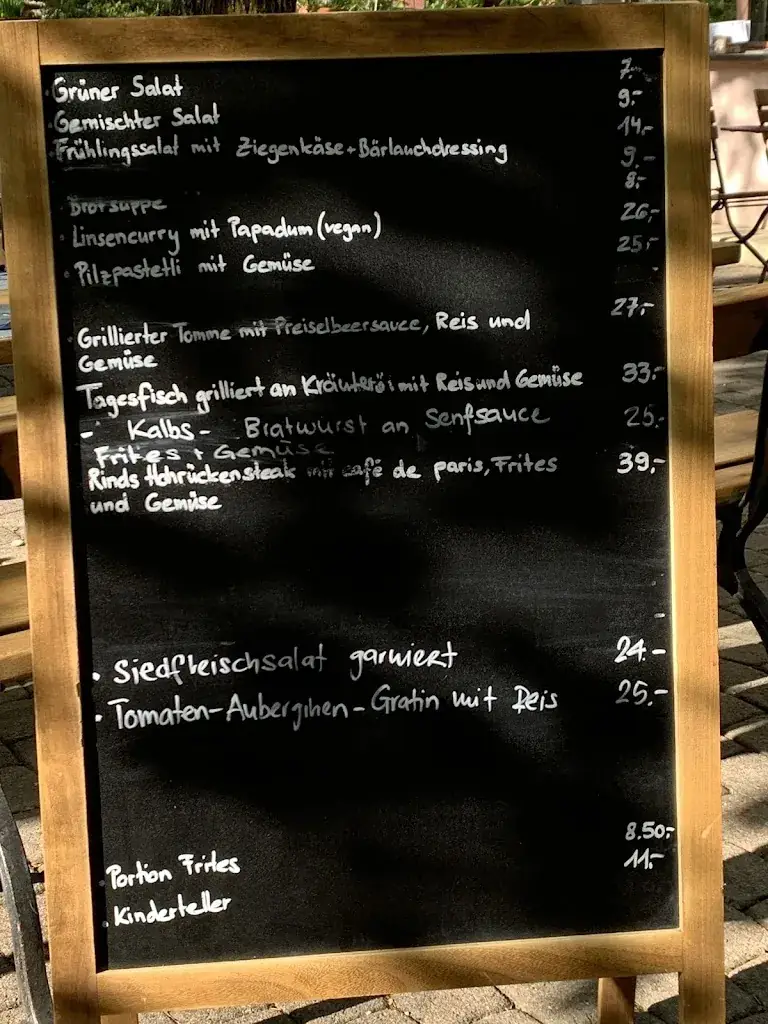 Grüner Salat 7.-
Gemischter Salat 9.-
Frühlingssalat mit Ziegenkäse + Bärlauchdressing 14.-
9.-
Brotsuppe 8.-
Linsencurry mit Papadum (vegan) 26.-
Pilzpastetli mit Gemüse 25.-
Grillierter Tomme mit Preiselbeersauce, Reis und 27.-
Gemüse
Tagesfisch grilliert an Kräuteröl mit Reis und Gemüse 33.-
- Kalbs- Bratwurst an Senfsauce 25.-
Frites + Gemüse
Rinds Hohrückensteak mit café de paris, Frites 39.-
und Gemüse
· Siedfleischsalat garniert 24.-
· Tomaten-Auberginen-Gratin mit Reis 25.-
8.50.-
Portion Frites 11.-
· Kinderteller